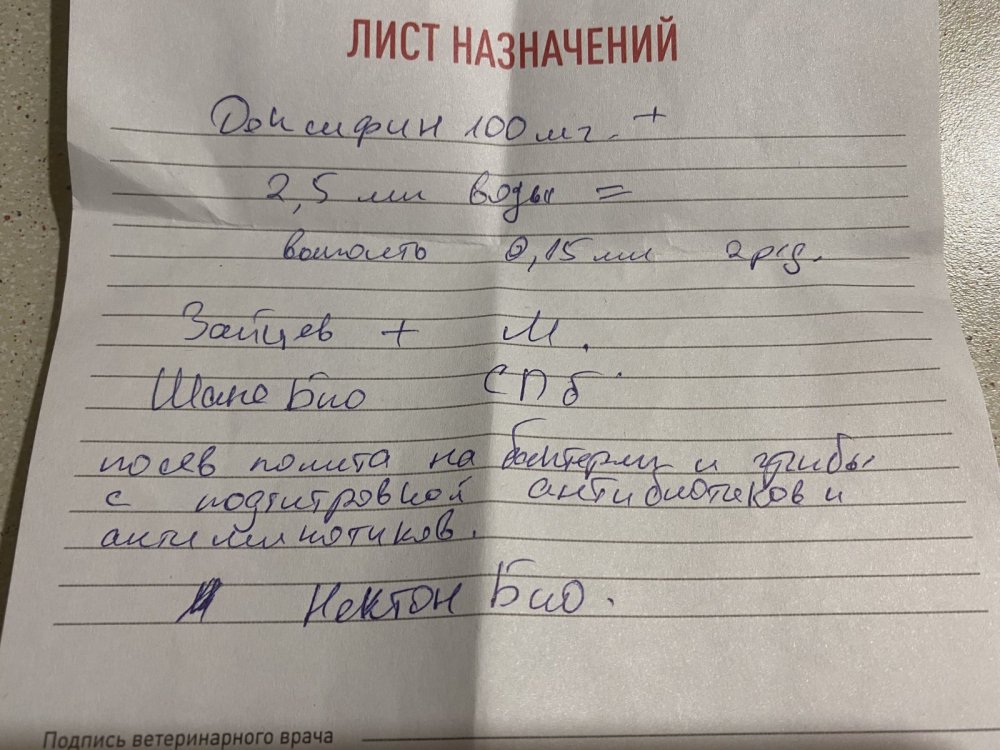 ЛИСТ НАЗНАЧЕНИЙ
Доксифин 100 мг. +
2,5 мл воды =
0,15 мл 2 р/д.
Зайцев + М.
Шанс Био СПб
посев помёта на бактерии и грибы
с подтитровкой антибиотиков и
антимикотиков.
Нектон Био.
Подпись ветеринарного врача